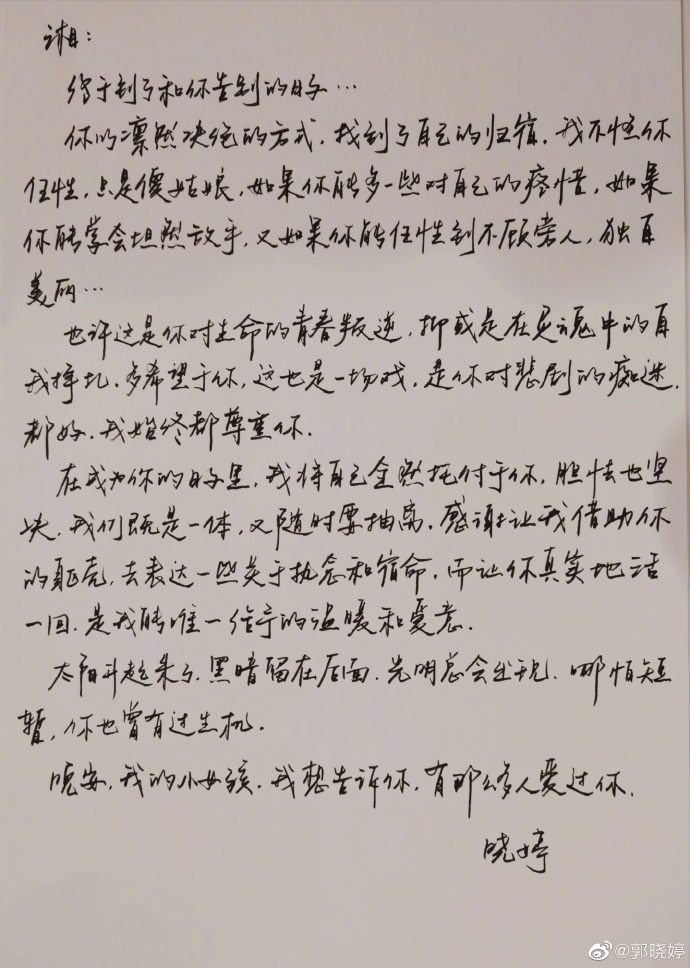 湘：
终于到了和你告别的日子…
你以凛然决绝的方式，找到了自己的归宿，我不怪你
任性，只是傻姑娘，如果你能多一些对自己的疼惜，如果
你能学会坦然放手，又如果你能任性到不顾旁人，独自
美丽…
也许这是你对生命的青春叛逆，抑或是在灵魂中的自
我挣扎，多希望于你，这也是一场戏，是你对悲剧的痴迷，
都好，我始终都尊重你。
在成为你的日子里，我将自己全然托付于你，胆怯也坚
决，我们既是一体，又随时要抽离，感谢让我借助你
的躯壳，去表达一些关于执念和宿命，而让你真实地活
一回，是我能唯一给予的温暖和爱意。
太阳升起来了，黑暗留在后面，光明总会出现，哪怕短
暂，你也曾有过生机。
晚安，我的小女孩，我想告诉你，有那么多人爱过你。
晓婷
@郭晓婷